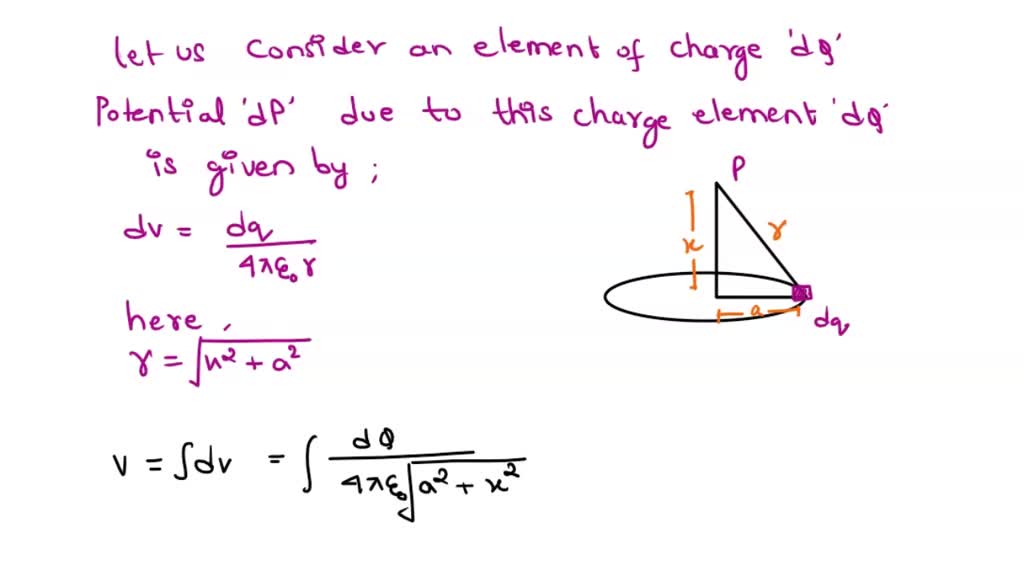 let us consider an element of charge 'dQ'
Potential 'dP' due to this charge element 'dQ'
is given by ;
P
dv = dq / 4πε₀r
x
r
a
dq
here ,
r = √x² + a²
v = ∫dv = ∫ dQ / 4πε₀√a² + x²